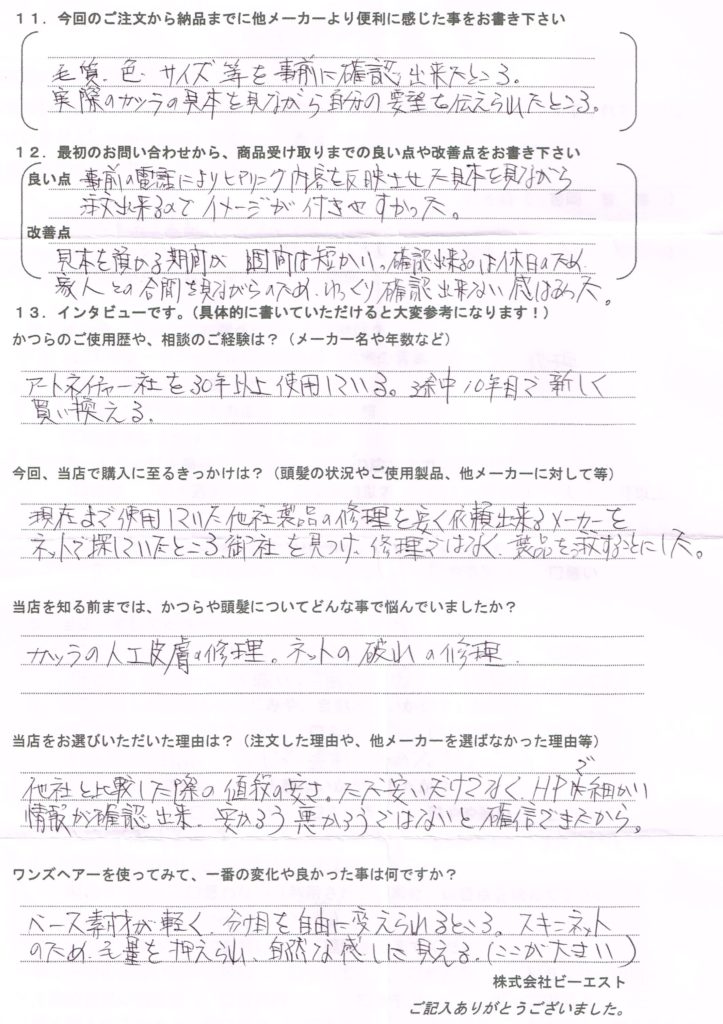 11．今回のご注文から納品までに他メーカーより便利に感じた事をお書き下さい
毛質、色、サイズ等を事前に確認出来たところ。
実際のカツラの見本を見ながら自分の要望を伝えられたところ。
12．最初のお問い合わせから、商品受け取りまでの良い点や改善点をお書き下さい
良い点 事前の電話によりヒアリング内容を反映させた見本を見ながら
注文出来るのでイメージが付きやすかった。
改善点
見本を預かる期間が1週間は短かい。確認出来るのは休日のため
家人との合間を見ながらのため、ゆっくり確認出来ない感はあった。
13．インタビューです。（具体的に書いていただけると大変参考になります！）
かつらのご使用歴や、相談のご経験は？（メーカー名や年数など）
アートネイチャー社を30年以上使用している。途中10年目で新しく
買い換える。
今回、当店で購入に至るきっかけは？（頭髪の状況やご使用製品、他メーカーに対して等）
現在まで使用していた他社製品の修理を安く依頼出来るメーカーを
ネットで探していたところ、御社を見つけ、修理ではなく、製品を試すことにした。
当店を知る前までは、かつらや頭髪についてどんな事で悩んでいましたか？
カツラの人工皮膚の修理。ネットの破れの修理
当店をお選びいただいた理由は？（注文した理由や、他メーカーを選ばなかった理由等）
他社と比較した際の値段の安さ。ただ安いだけでなく、HPで細かい
情報が確認出来、安かろう悪かろうではないと確信できたから。
ワンズヘアーを使ってみて、一番の変化や良かった事は何ですか？
ベース素材が軽く、分け目を自由に変えられるところ。スキンネット
のため、毛量を押えられ、自然な感じに見える。（ここが大きい）
株式会社ビーエスト
ご記入ありがとうございました。